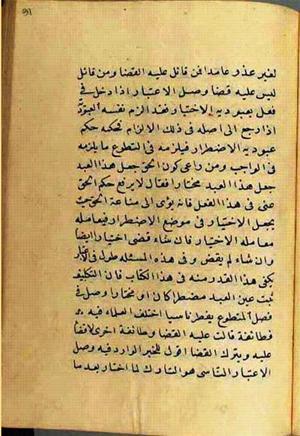 لغير عذر عامدا فمن قائل عليه القضا ومن قائل
ليس عليه قضا وصل الاعتبار اذا دخل في
فعل بعبودية الاختيار فقد الزم نفسه العبودية
اذا رجع الى اصله في ذلك الالزام فحكمه حكم
عبودية الاضطرار فيلزمه في التطوع ما يلزمه
في الواجب ومن راعى كون الحق جعل هذا العبد
جعل هذا العبد مختارا فقال لا يرفع حكم الحق
عنى في هذا الفعل فانه يؤدى الى منازعة الحق حيث
يجعل الاختيار في موضع الاضطرار فيعامله
معاملة الاختيار فان شاء قضى اختيارا ايضا
وان شاء لم يقض وفي هذه المسئلة طول في
يكفى هذا القدر منه في هذا الكتاب فان التكليف
ثبت عين العبد مضطرا كان او مختارا وصل في
فصل المتطوع يفطر ناسيا اختلف العلماء فيه
فطائفة قالت عليه القضا وطائفة اخرى لا قضا
عليه وبترك القضا اقول للخبر الوارد فيه وصل
الاعتبار الناسى هو التارك لما اختار بعد ما